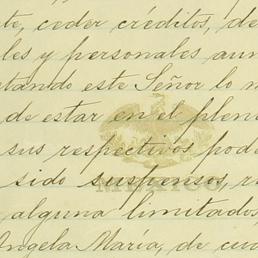 te, ceder créditos, de
les y personales aun
tando este Señor lo n
de estar en el plen
sus respectivos pode
sido suspensos, r
alguna limitados,
Angela María, de cu